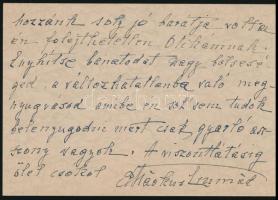 hozzánk sok jó barátja volt
én felejthetetlen Olchamnak.
Enyhítse bánatodat nagy bölcsesé
ged, a változhatatlanba való meg
nyugvásod amibe én sok sem tudok
belenyugodni mert csak gyarló asz
szony vagyok. A viszontlátásig
ölel csókol